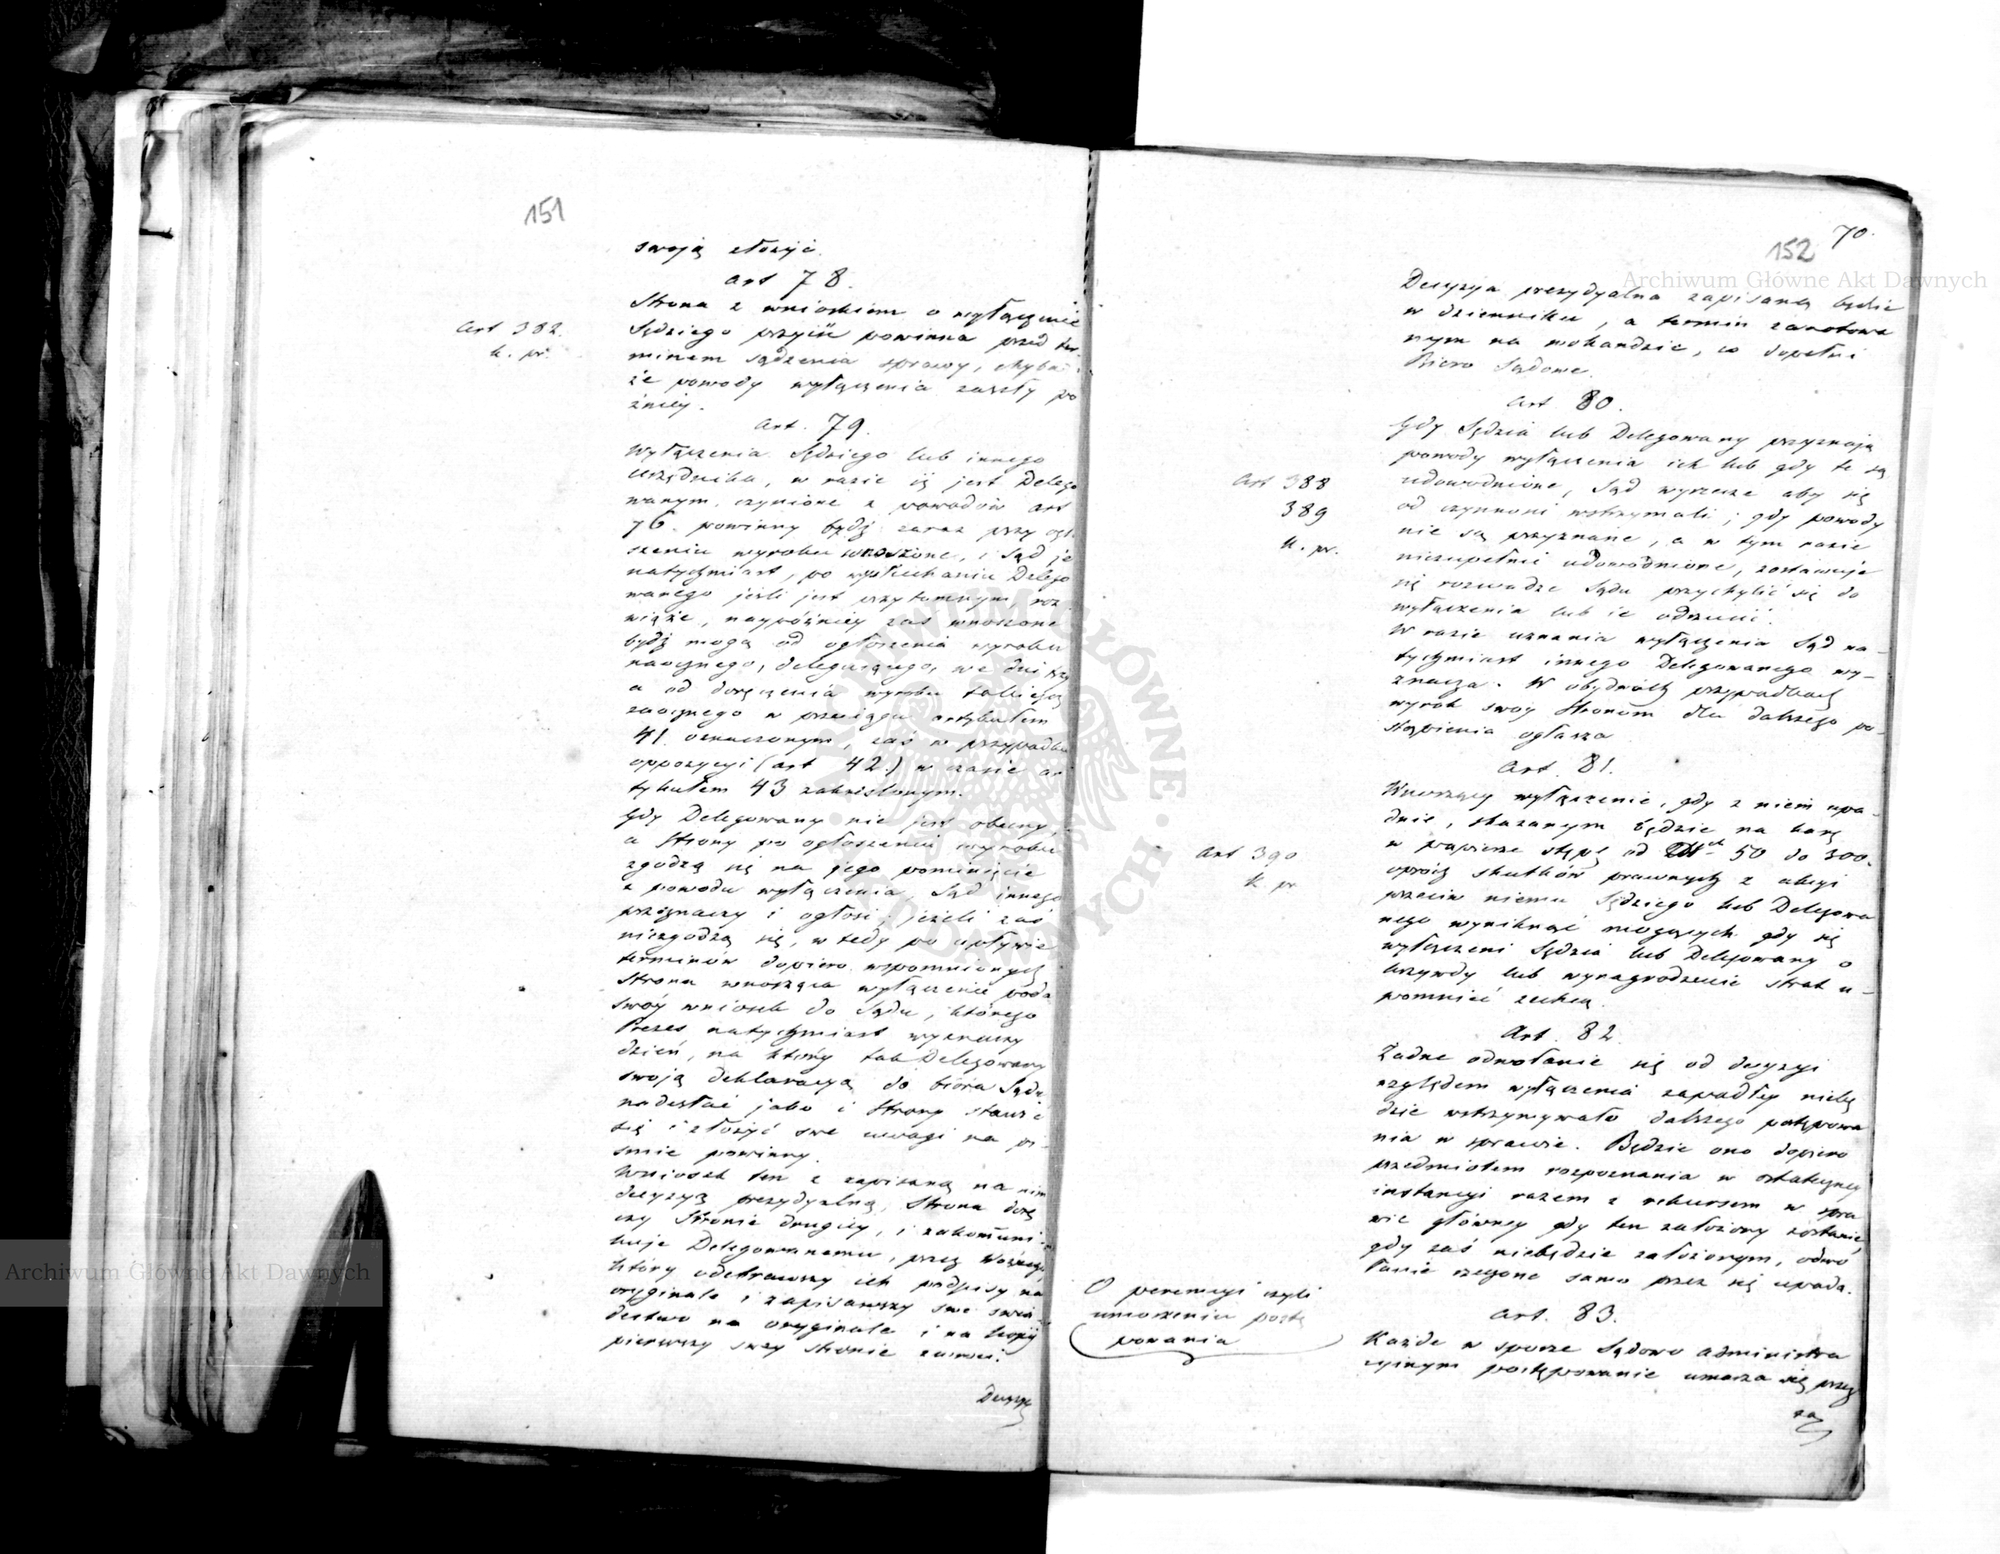 151
swoją złożyć.
Art 78.
Art 382.
k. pr.
Strona z wnioskiem o wyłączenie
Sędziego przyiść powinna przed ter-
minem sądzenia sprawy, chyba
że powody wyłączenia zaszły po
źniey.
Art. 79.
Wyłączenia Sędziego lub innego
Urzędnika, w razie iż jest Delego
wanym, czynione z powodów art
76. powinny bydź zaraz przy ogł-
szeniu wyroku wnoszone, i Sąd je
natychmiast, po wysłuchaniu Delego
wanego jeśli jest przytomnym, roz
wiąże, naypóźniey zaś wnoszone
bydź mogą od ogłoszenia wyroku
naocznego, delegującego, we dni trzy
a od doręczenia wyroku takiegoż
zaocznego w przeciągu artykułem
41 oznaczonym, zaś w przypadku
oppozycyi (art 42.) w czasie ar
tykułem 43 zakreślonym.
Gdy Delegowany nie jest obecny,
a Strony po ogłoszeniu wyroku
zgodzą się na jego pominięcie
z powodu wyłączenia, Sąd innego
przeznaczy i ogłosi; jeżeli zaś
niezgodzą się, w tedy po upływie
terminów dopiero wspomnionych
Strona wnosząca wyłączenie poda
swóy wniosek do Sądu, którego
Prezes natychmiast wyznaczy
dzień, na który tak Delegowany
swoją deklaracyą do bióra Sądu
nadesłać jako i Strony stawić
się i złożyć swe uwagi na pi-
śmie powinny.
Wniosek ten z zapisaną na nim
decyzyą prezydyalną, Strona dorę
czy Stronie drugiey, i zakommuni
kuje Delegowanemu, przez Woźnego,
który odebrawszy ich podpisy na
oryginale i zapisawszy swe świa
dectwo na oryginale i na kopij
pierwszy swey stronie zwróci.
Decyzya
70.
152
Decyzya prezydyalna zapisaną będzie
w dzienniku, a termin zanotowa
nym na wokandzie, co dopełni
Bióro Sądowe.
Art 80.
Art 388
389
k. pr.
Gdy Sędzia lub Delegowany przyznają
powody wyłączenia ich lub gdy te są
udowodnione, Sąd wyrzecze aby się
od czynności wstrzymali; gdy powody
nie są przyznane, a w tym razie
niezupełnie udowodnione, zostawuje
się rozwadze Sądu przychylić się do
wyłączenia lub ie odrzucić.
W razie uznania wyłączenia Sąd na-
tychmiast innego Delegowanego wy-
znacza. W obydwóch przypadkach
wyrok swóy Stronom dla dalszego po-
stąpienia ogłasza
Art. 81.
Art 390
k. pr
Wnoszący wyłączenie, gdy z niem upa-
dnie, skazanym będzie na karę
w papierze stęplu od 50 do 300.
oprócz skutków prawnych z akcyi
przeciw niemu Sędziego lub Delegowa
nego wyniknąć mogących gdy się
wyłączeni Sędzia lub Delegowany o
krzywdy lub wynagrodzenie strat u-
pomnieć zechcą.
Art. 82.
Żadne odwołanie się od decyzyi
względem wyłączenia zapadłey niebę
dzie wstrzymywało dalszego postępowa
nia w sprawie. Będzie ono dopiero
przedmiotem rozpoznania w ostateczney
instancyi razem z rekursem w spra
wie główney gdy ten założony zostanie,
gdy zaś niebędzie założonym, odwo
łanie rzeczone samo przez się upada.
Art. 83.
O peremcyi czyli
umorzeniu postę
powania
Każde w sporze Sądowo administra
cyinym postępowanie umarza się przez
za